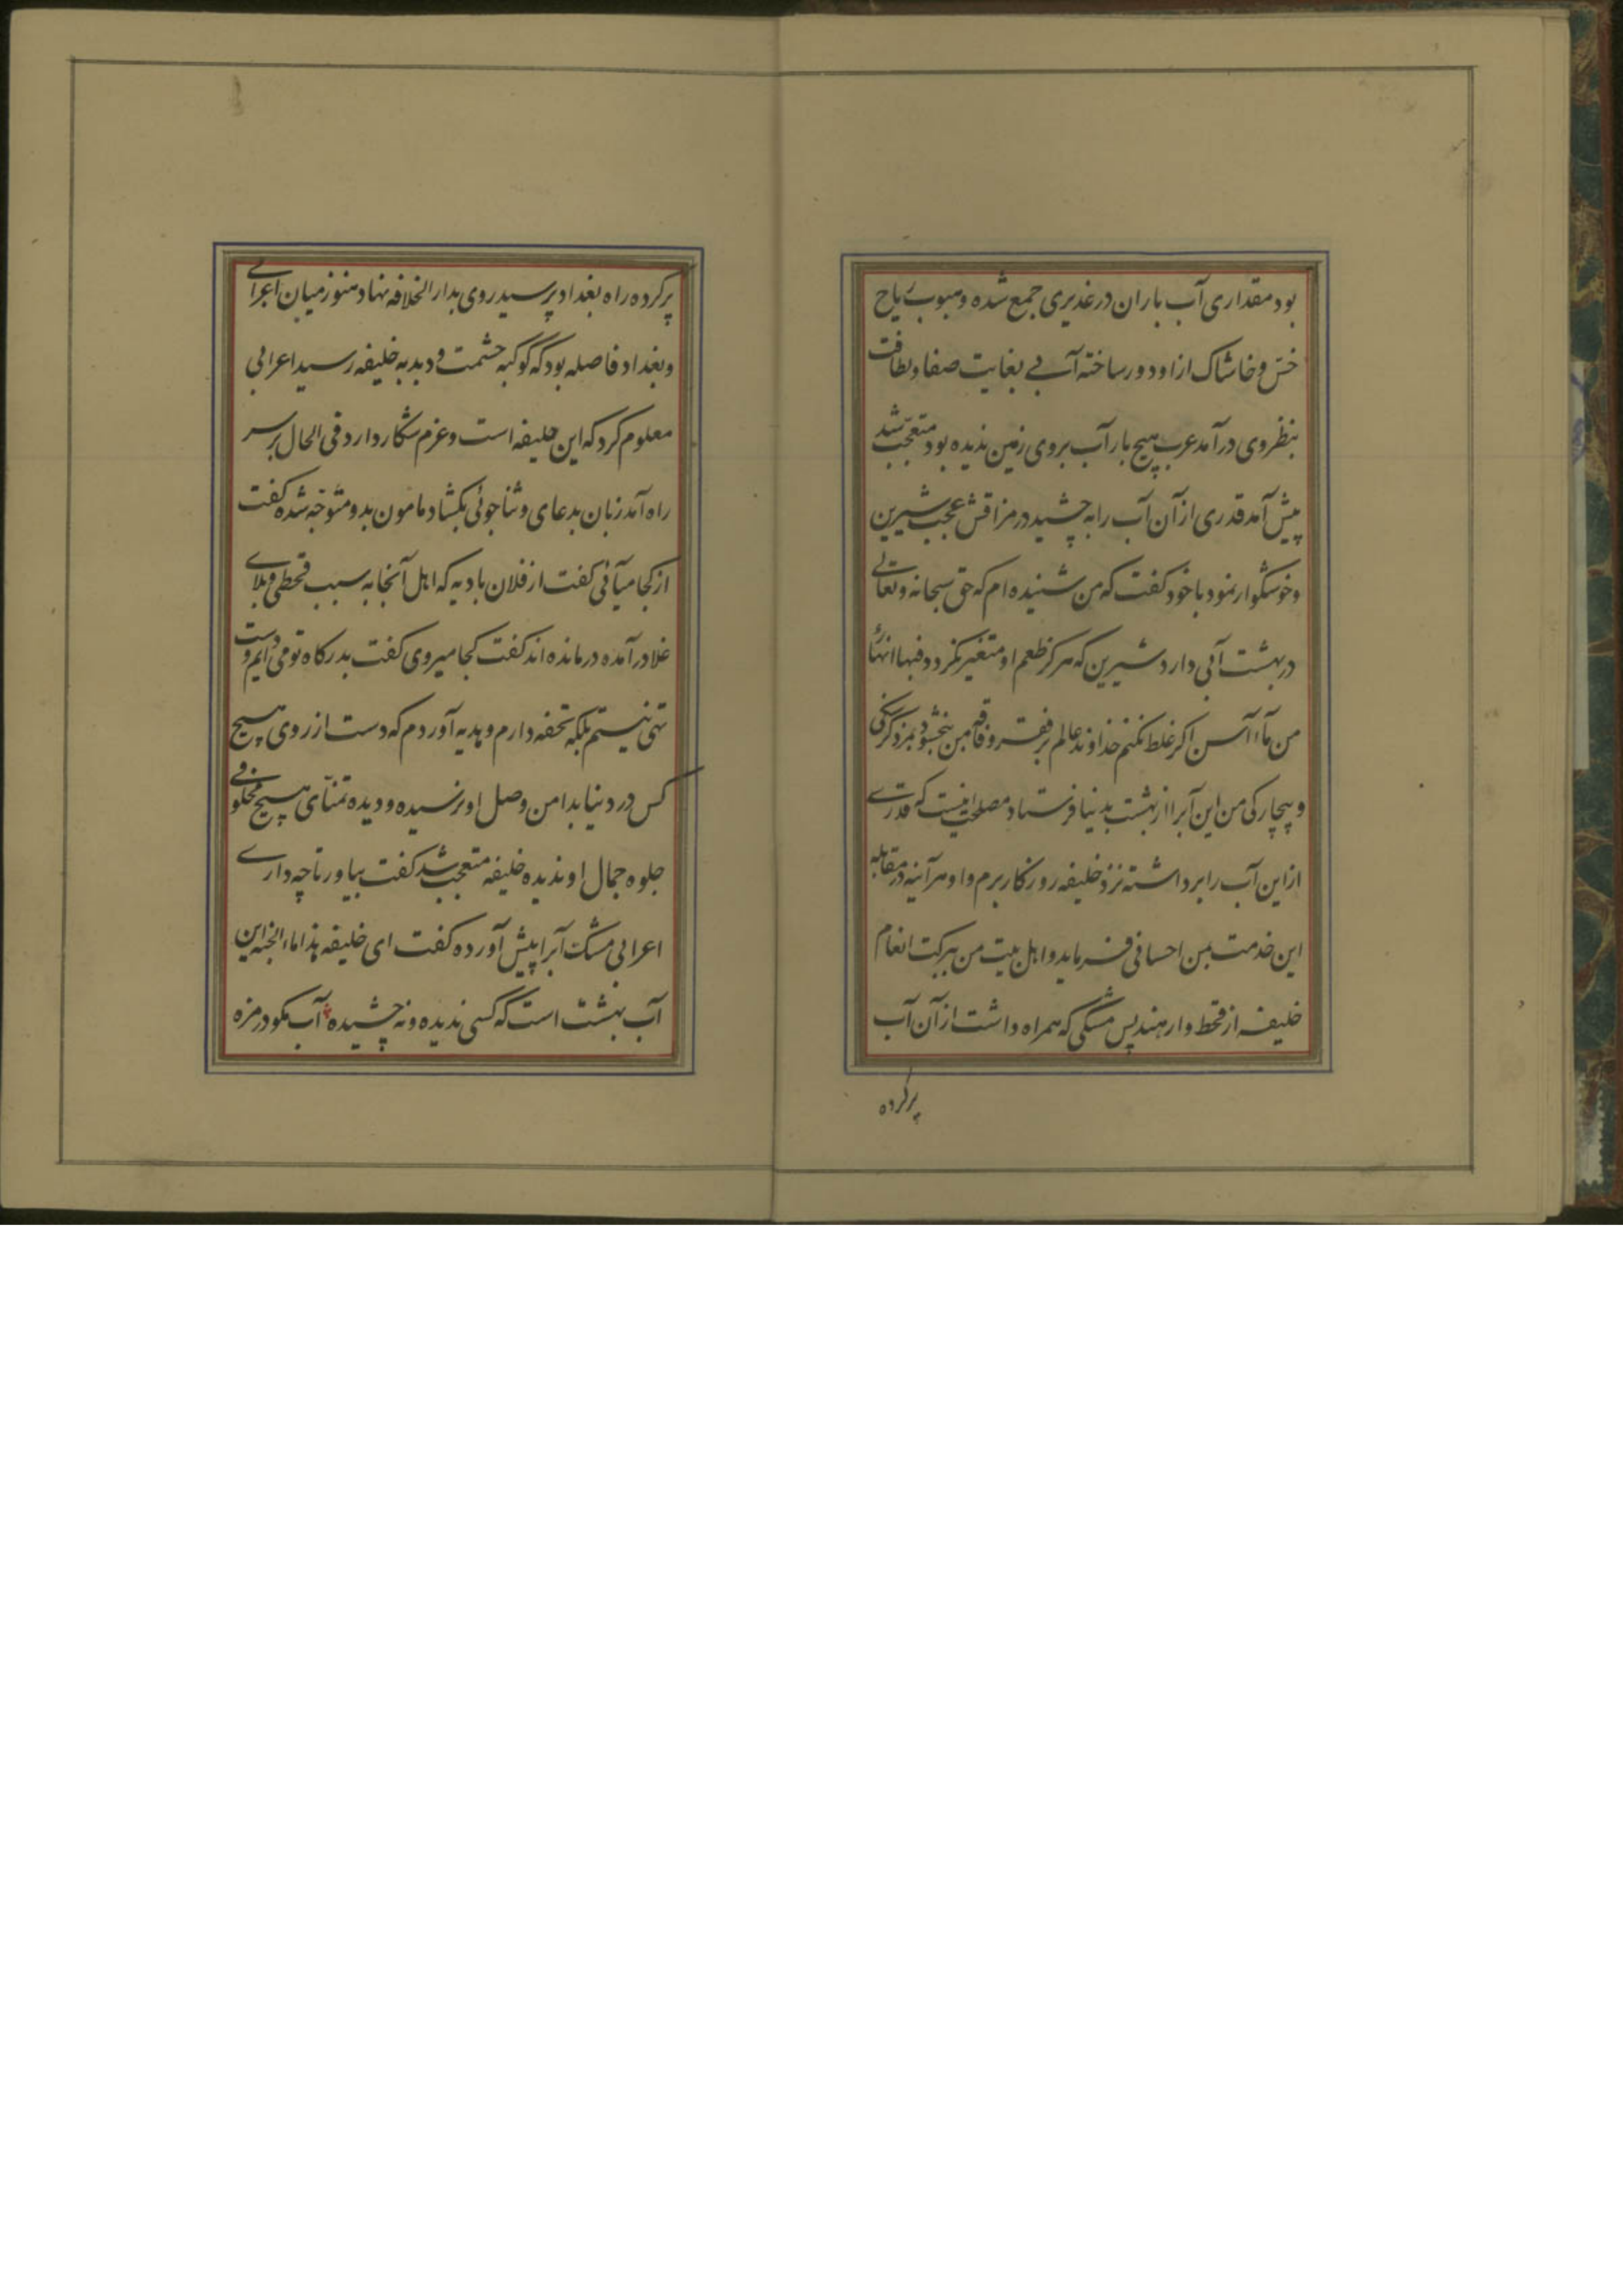 بود مقداری آب باران در غدیری جمع شده و هبوب ریاح
خس و خاشاک از او دور ساخته آبی بغایت صفا و لطافت
بنظر وی در آمد عرب هیچ بار آب بروی زمین ندیده بود متعجب شد
پیش آمد قدری از آن آب را به چشید در مزاقش عجب شیرین
و خوشگوار نمود با خود گفت که من شنیده ام که حق سبحانه و تعالی
در بهشت آبی دارد شیرین که هرگز طعم او متغیر نگردد و فیها انهار
من ماء آسن اگر غلط نکنم خداوند عالم بر فقر و فاقه من بخشود
و بیچارگی من این آبرا از بهشت بدنیا فرستاد مصلحت اینست که قدری
از این آب را برداشته نزد خلیفه روزگار برم و او هر آئینه در مقابله
این خدمت بمن احسانی فرماید و اهل بیت من ببرکت انعام
خلیفه از قحط وارهند پس مشکی که همراه داشت از آن آب
پر کرده
پر کرده راه بغداد پرسید روی بدار الخلافه نهاد هنوز میان اعرابی
و بغداد فاصله بود که کوکبه حشمت و دبدبه خلیفه رسید اعرابی
معلوم کرد که این خلیفه است و عزم شکار دارد فی الحال بر سر
راه آمد زبان بدعای و ثناجوئی بگشاد مامون بدو متوجه شده گفت
از کجا میآئی گفت از فلان بادیه که اهل آنجا به سبب قحطی و بلای
غلا در آمده درمانده اند گفت کجا میروی گفت بدرگاه تو می آیم و دست
تهی نیستم بلکه تحفه دارم و هدیه آوردم که دست ازروی هیچ
کس در دنیا بدامن وصل او نرسیده و دیده تمنّای هیچ مخلوقی
جلوه جمال او ندیده خلیفه متعجب شد گفت بیاور تا چه داری
اعرابی مشک آبرا پیش آورده گفت ای خلیفه هذا ماء الجنه این
آب بهشت است که کسی ندیده و نه چشیده آب مگو در مزه